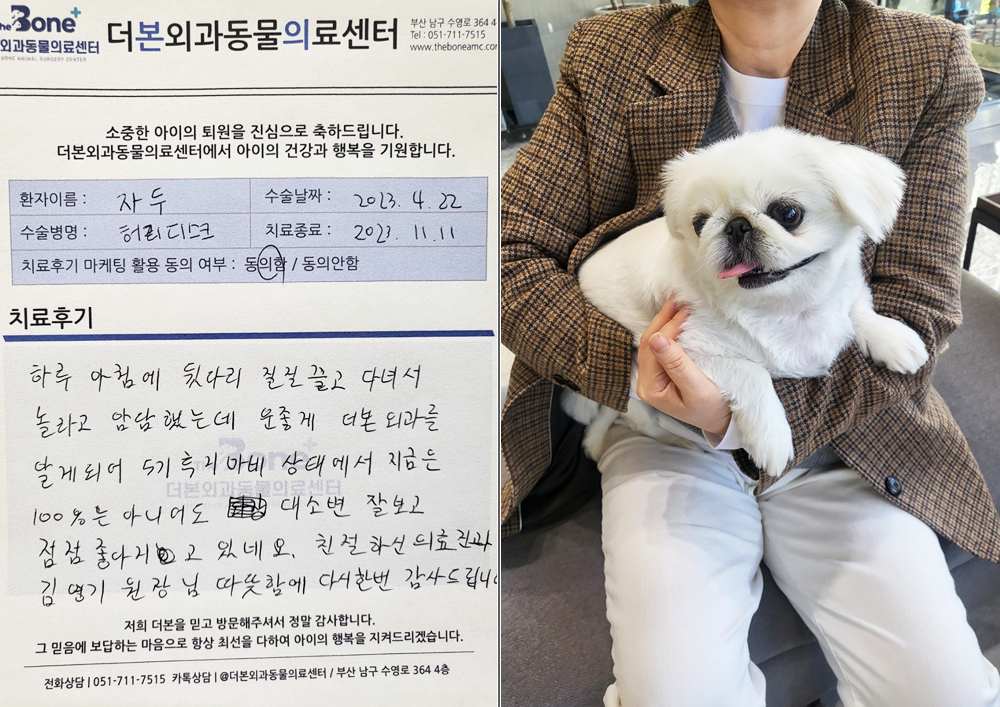 The Bone+
외과동물의료센터
BONE ANIMAL SURGERY CENTER
더본외과동물의료센터
부산 남구 수영로 364 4
Tel : 051-711-7515
www.theboneamc.com
소중한 아이의 퇴원을 진심으로 축하드립니다.
더본외과동물의료센터에서 아이의 건강과 행복을 기원합니다.
환자이름 : 자두 수술날짜 : 2023. 4. 22
수술병명 : 허리디스크 치료종료 : 2023. 11. 11
치료후기 마케팅 활용 동의 여부 : 동의함 / 동의안함
치료후기
하루 아침에 뒷다리 질질 끌고 다녀서
놀라고 암담했는데 운좋게 더본 외과를
알게되어 5기 후지마비 상태에서 지금은
100%는 아니어도 대소변 잘보고
점점 좋아지고 있네요. 친절하신 의료진과
김영기 원장님 따뜻함에 다시한번 감사드립니다
The Bone+
더본외과동물의료센터
저희 더본을 믿고 방문해주셔서 정말 감사합니다.
그 믿음에 보답하는 마음으로 항상 최선을 다하여 아이의 행복을 지켜드리겠습니다.
전화상담 | 051-711-7515 카톡상담 | @더본외과동물의료센터 / 부산 남구 수영로 364 4층